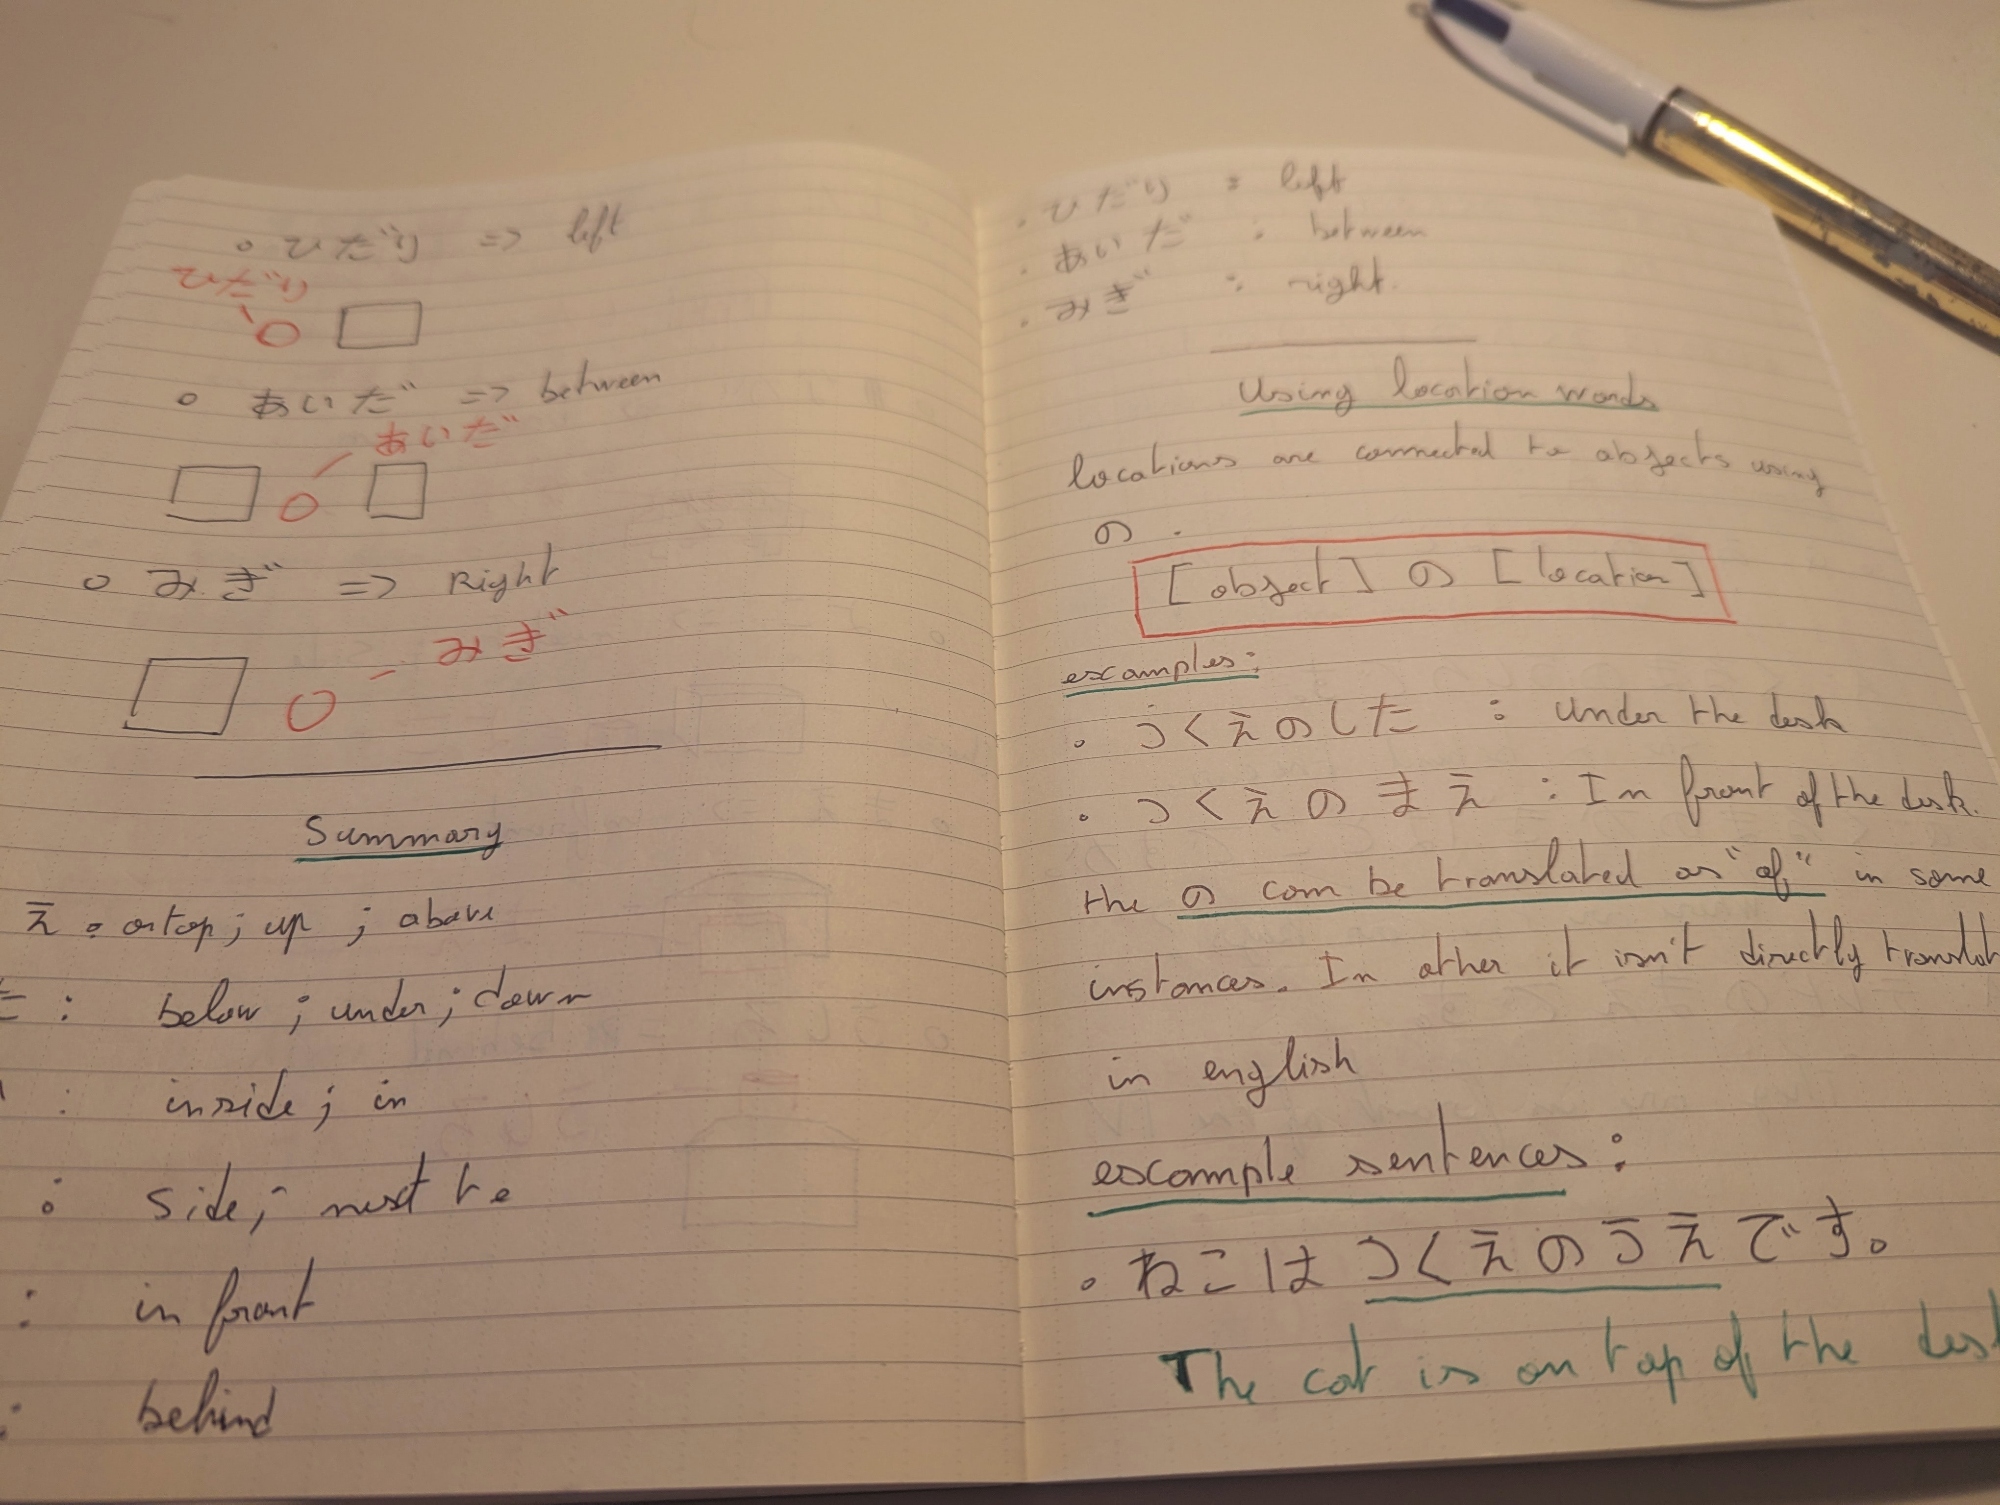 ひだり => left
ひだり
あいだ => between
あいだ
みぎ => Right
みぎ
Summary
え : on top; up ; above
た : below ; under ; down
: inside ; in
: side ; next to
: in front
: behind
・ひだり : left
・あいだ : between
・みぎ : right.
Using location words
locations are connected to objects using
の.
[object] の [location]
examples:
・つくえのした : under the desk
・つくえのまえ : In front of the desk.
the の can be translated as "of" in some
instances. In other it isn't directly translat
in english
example sentences:
・ねこはつくえのうえです。
The cat is on top of the des